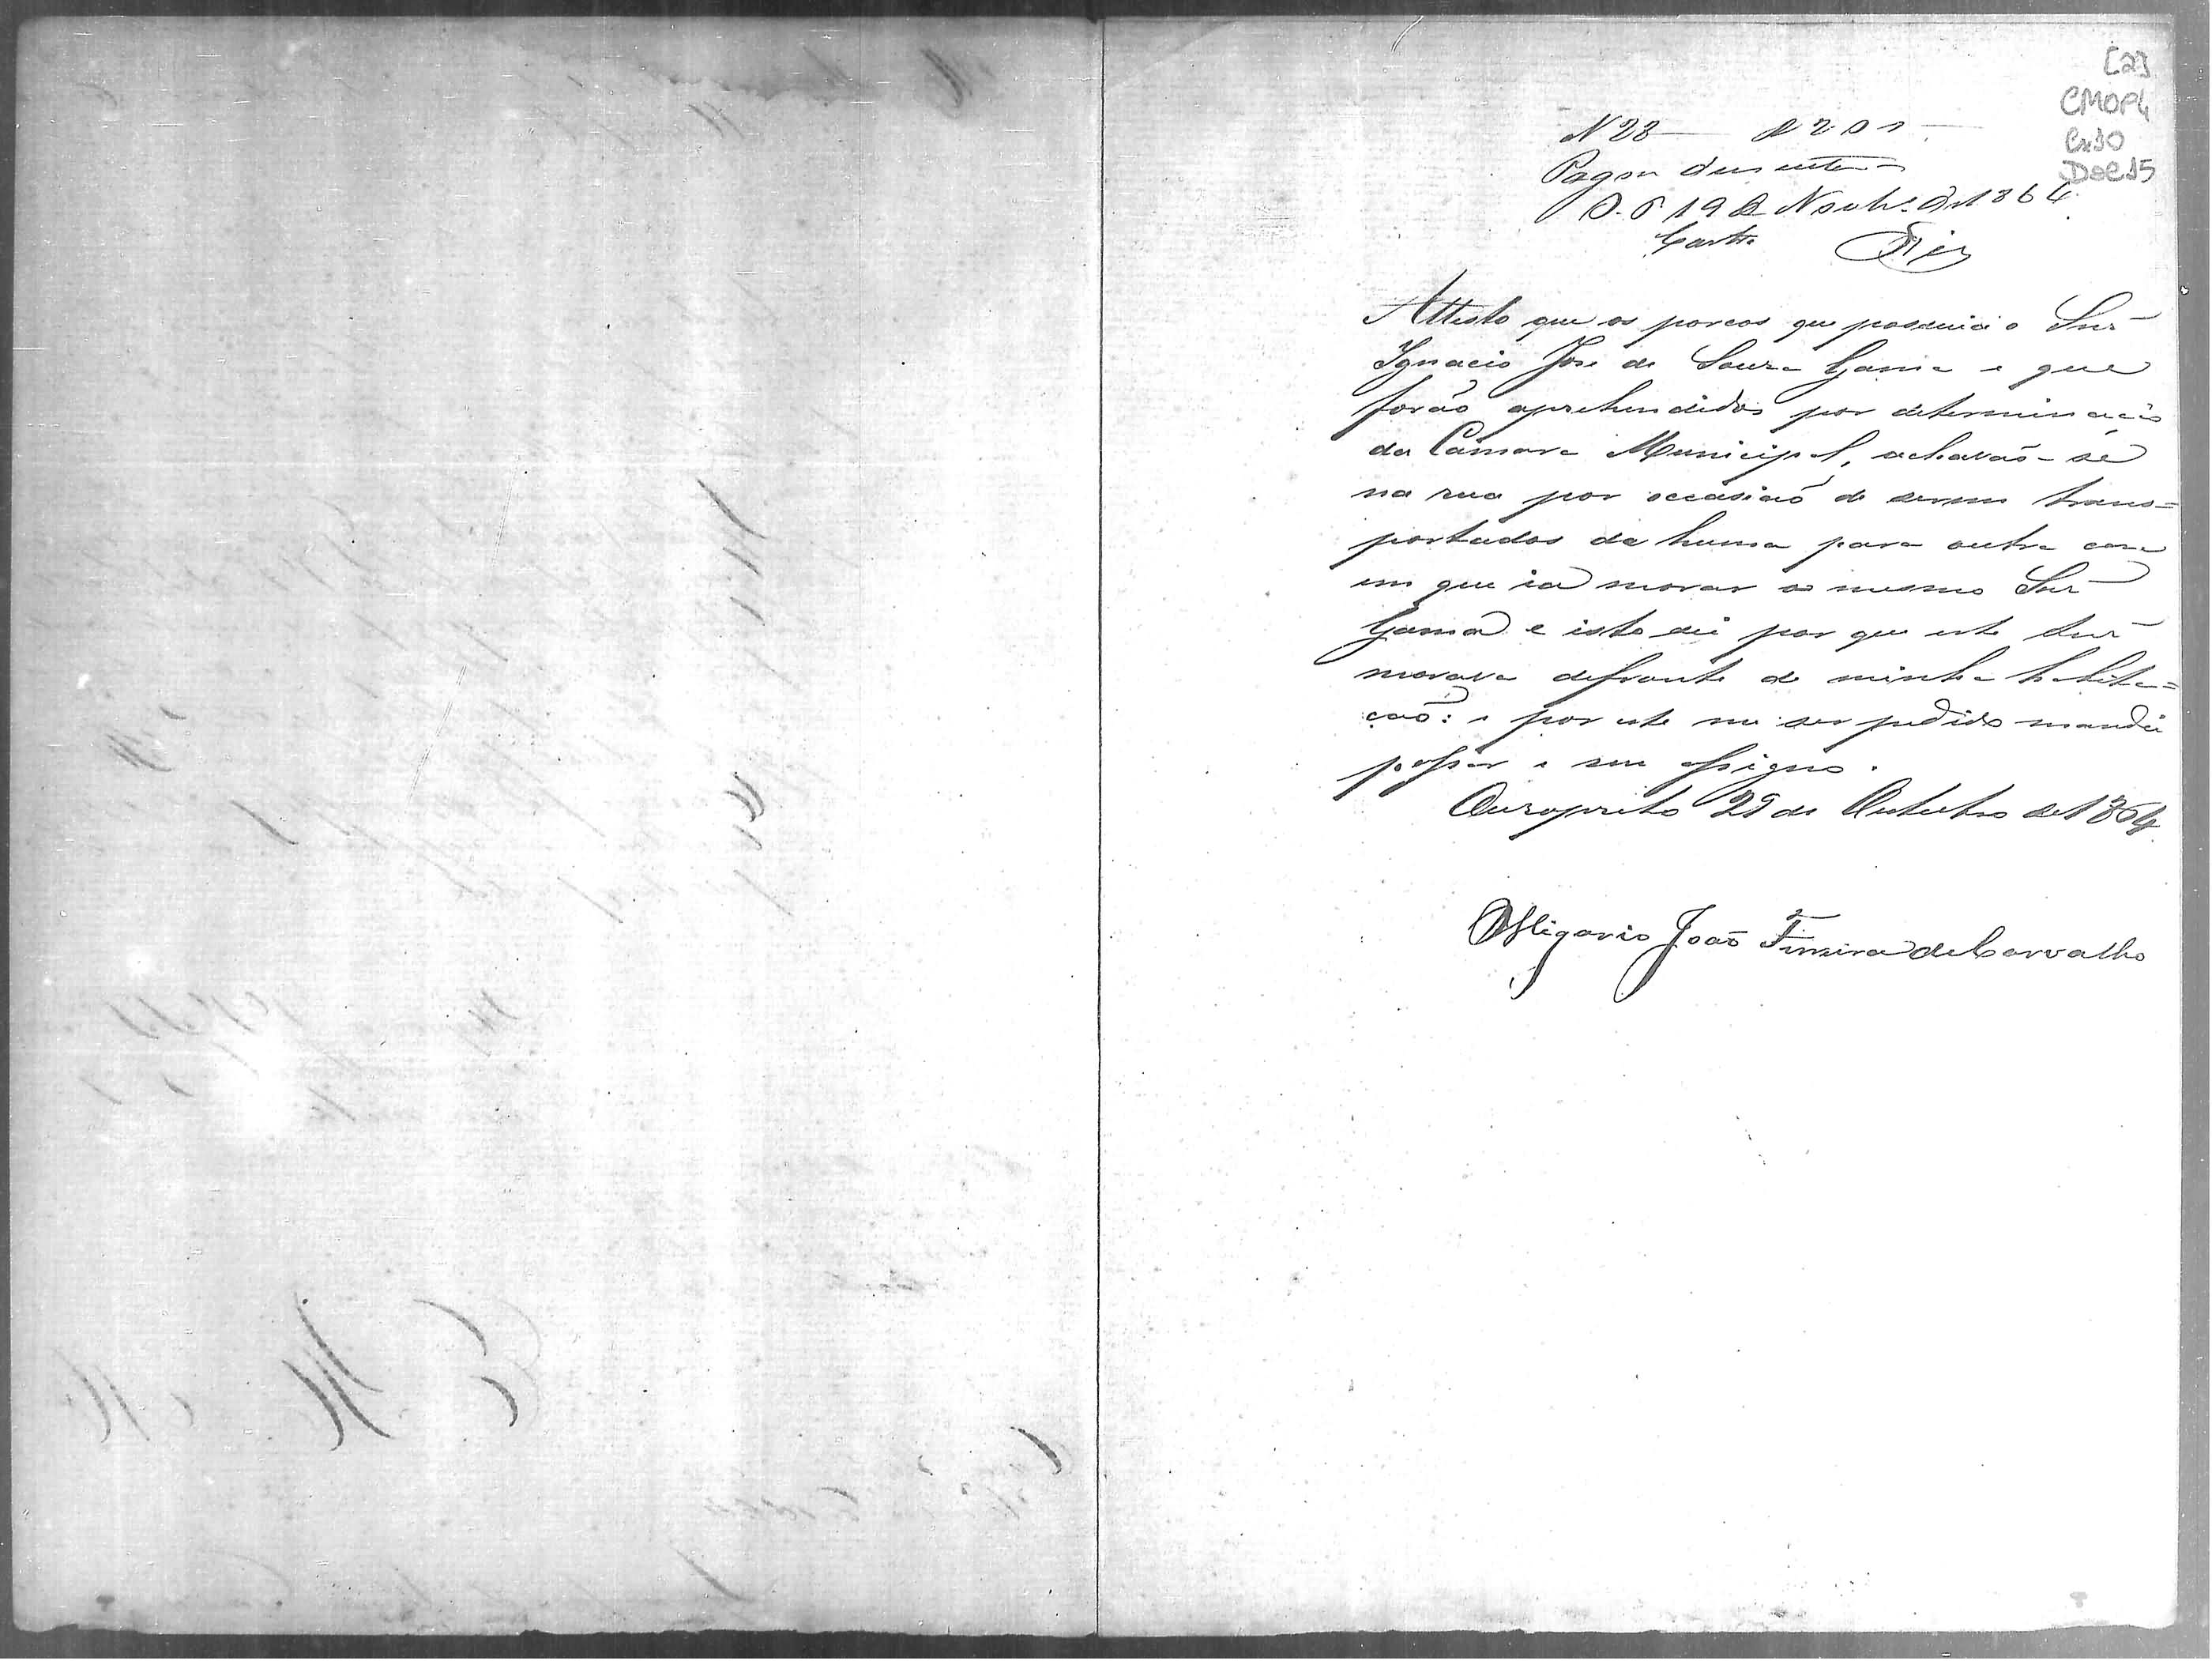 [2]
CMOP4
Cx30
DOC15
N 28 — R 200
Pagou duzentos r
O. P. 19 de Novbr.º de 1864
Attesto que os porcos que possuia o Snr
Ignacio José de Souza Gama e que
forão aprehendidos por determinação
da Camara Municipal, achavaõ-se
na rua por occasiaõ de serem trans=
portados de huma para outra casa
em que ia morar o mesmo Snr
Gama e isto sei por que este Snr
morava defronte de minha habita=
çaõ: e por este me ser pedido mandei
passar e me assigno.
Ouropreto 29 de Outubro de 1864
Olligario João Ferreira de Carvalho